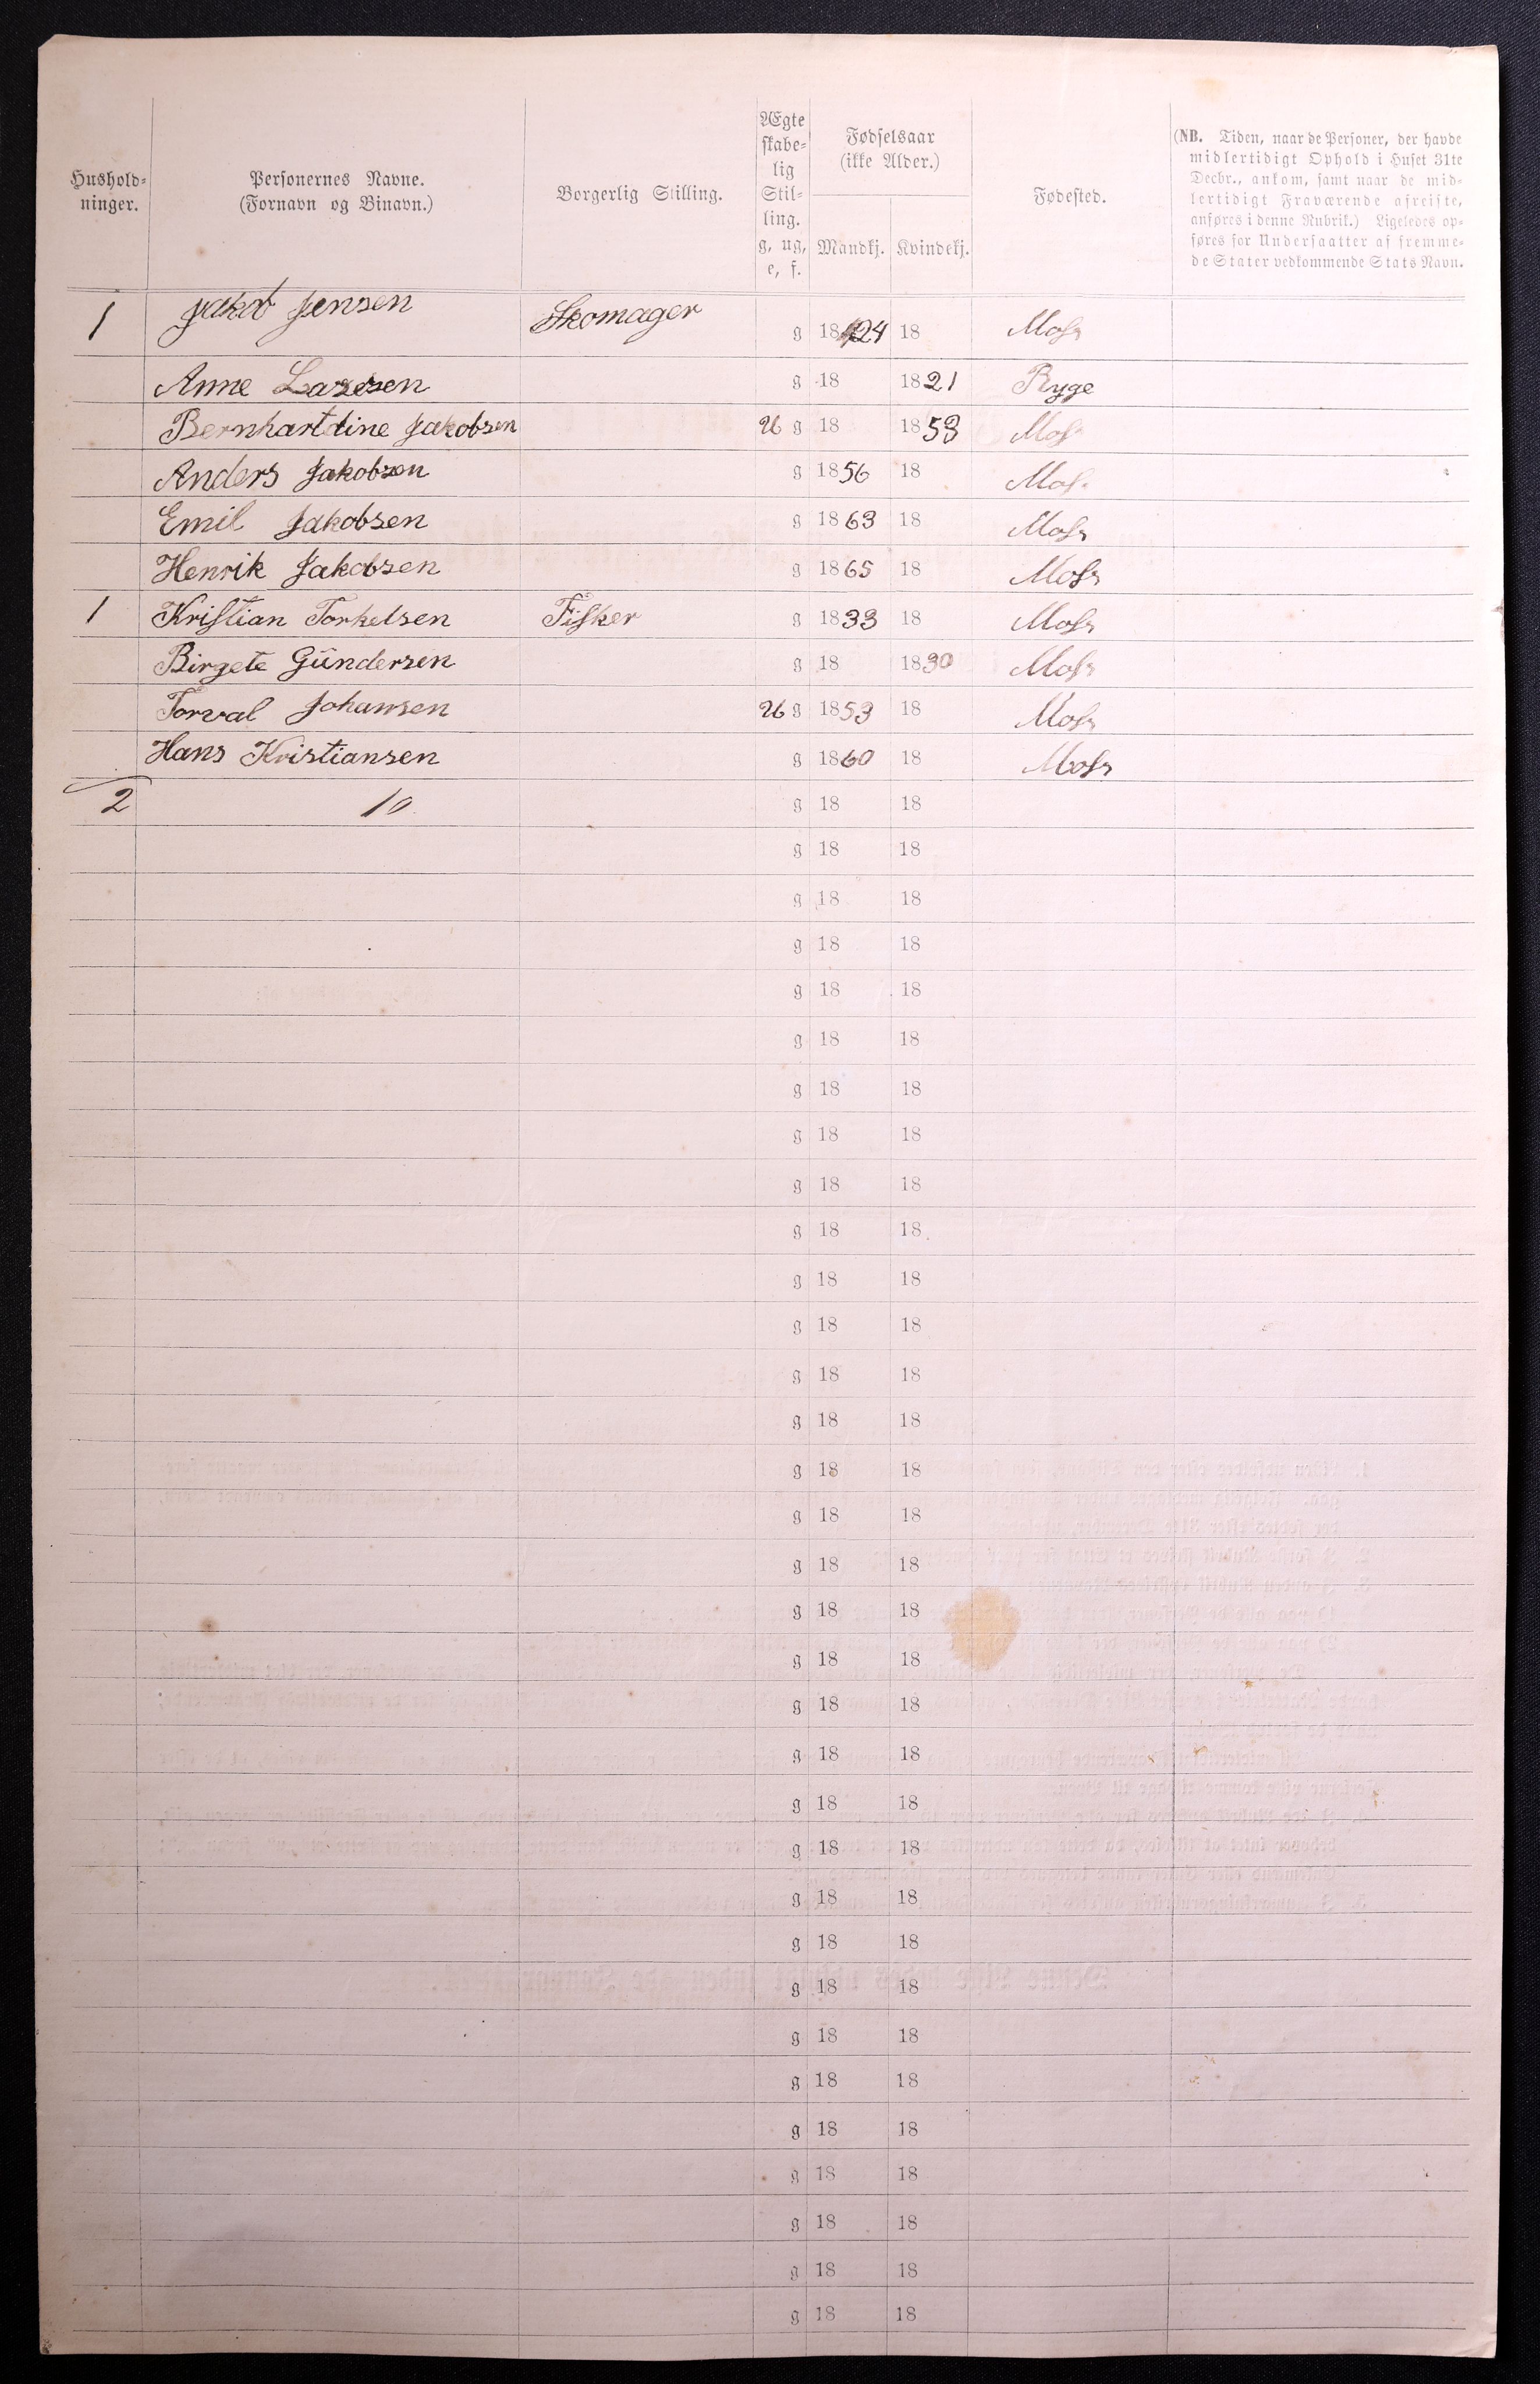 Hushold-
ninger.
Personernes Navne.
(Fornavn og Binavn.)
Borgerlig Stilling.
Ægte
skabe-
lig
Stil-
ling.
g, ug,
e, f.
Fødselsaar
(ikke Alder.)
Mandkj. Kvindekj.
Fødested.
(NB. Tiden, naar de Personer, der havde
midlertidigt Ophold i Huset 31te
Decbr., ankom, samt naar de mid-
lertidigt Fraværende afreiste,
anføres i denne Rubrik.) Ligeledes op-
føres for Undersaatter af fremme-
de Stater vedkommende Stats Navn.
1 Jakob Jensen Skomager g 1824 18 Moss
Anne Larsen g 18 1821 Rygge
Bernhartdine Jakobsen U g 18 1853 Moss
Anders Jakobsen g 1856 18 Moss
Emil Jakobsen g 1863 18 Moss
Henrik Jakobsen g 1865 18 Moss
1 Kristian Torkelsen Fisker g 1833 18 Moss
Birgete Gündersen g 18 1830 Moss
Torval Johansen U g 1853 18 Moss
Hans Kristiansen g 1860 18 Moss
2 10 g 18 18
g 18 18
g 18 18
g 18 18
g 18 18
g 18 18
g 18 18
g 18 18
g 18 18
g 18 18
g 18 18
g 18 18
g 18 18
g 18 18
g 18 18
g 18 18
g 18 18
g 18 18
g 18 18
g 18 18
g 18 18
g 18 18
g 18 18
g 18 18
g 18 18
g 18 18
g 18 18
g 18 18
g 18 18
g 18 18
g 18 18
g 18 18
g 18 18